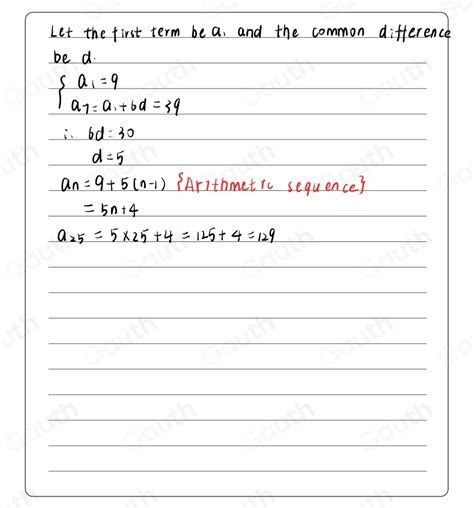 Let the first term be a₁ and the common difference
be d.
{ a₁ = 9
a₇ = a₁ + 6d = 39
∴ 6d = 30
d = 5
an = 9 + 5(n-1) {Arithmetic sequence}
= 5n + 4
a₂₅ = 5 × 25 + 4 = 125 + 4 = 129
Gauth